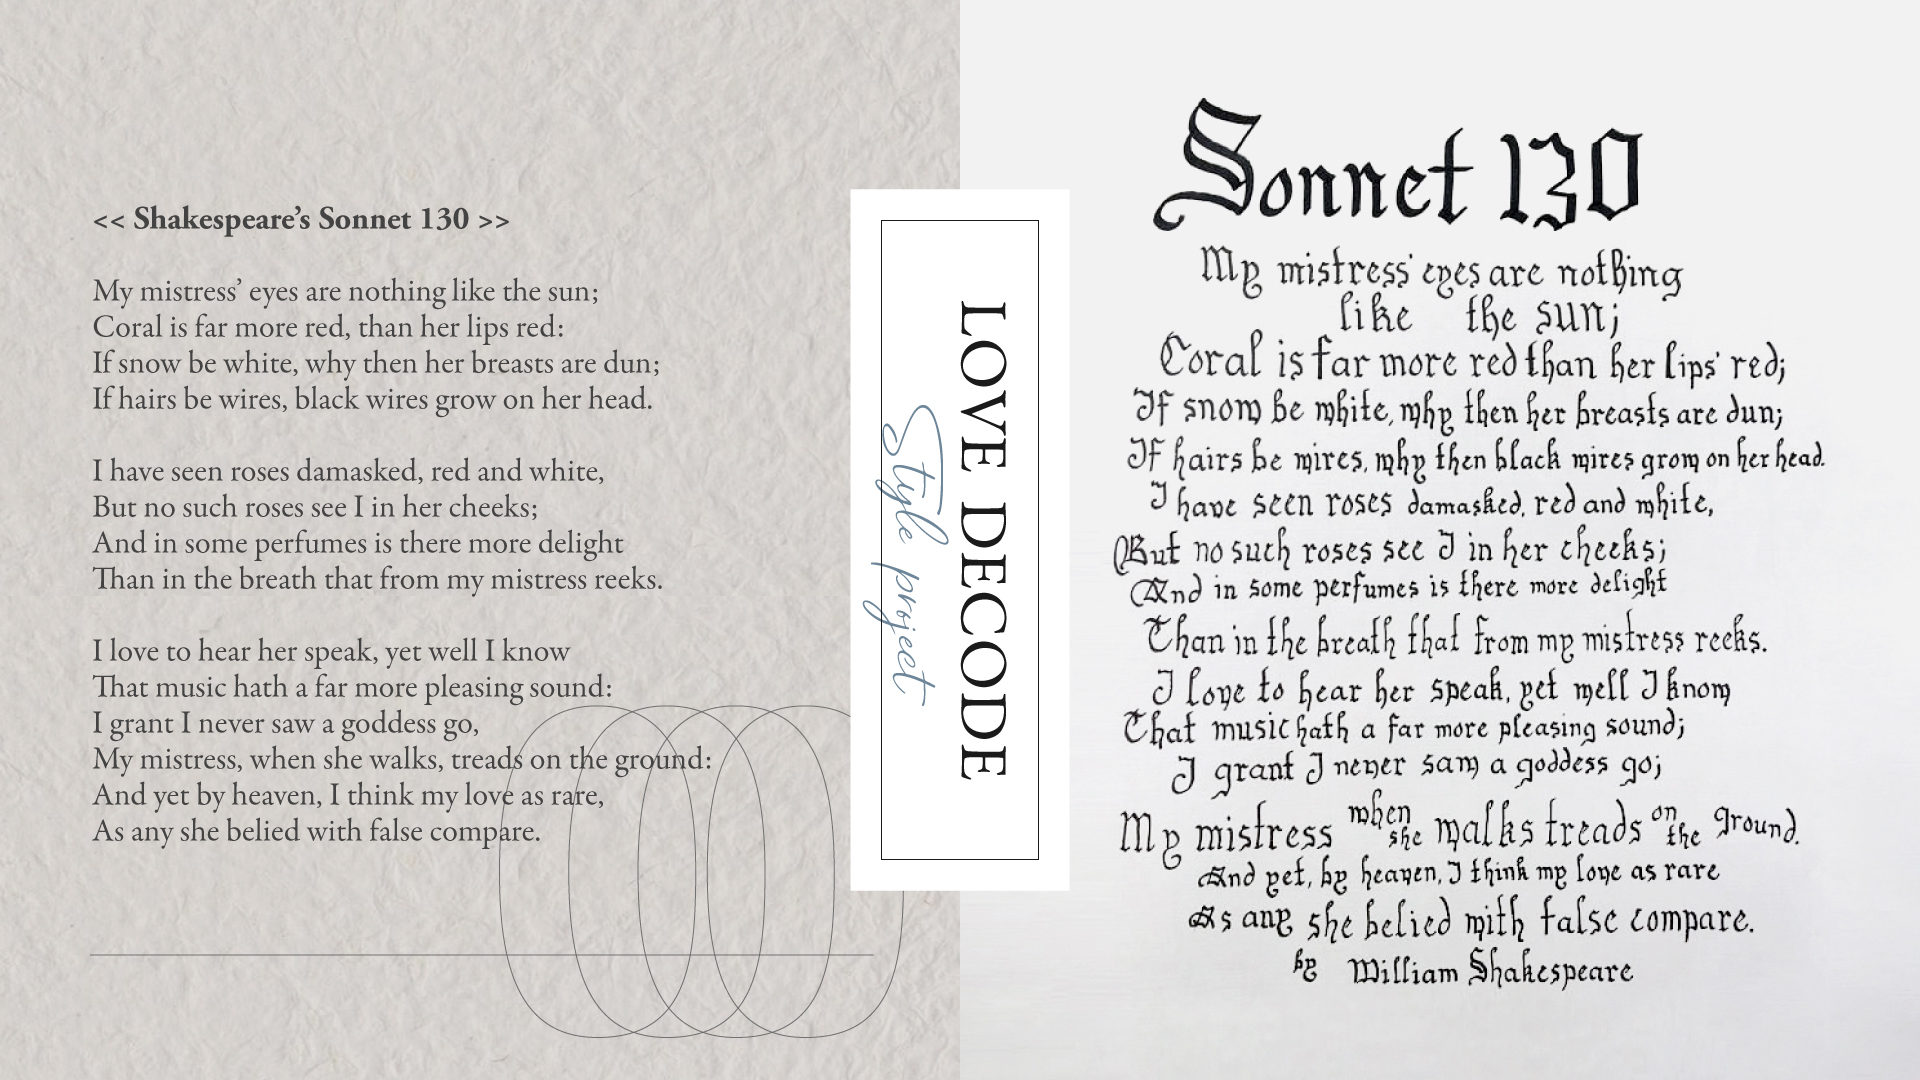 << Shakespeare’s Sonnet 130 >>
My mistress’ eyes are nothing like the sun;
Coral is far more red, than her lips red:
If snow be white, why then her breasts are dun;
If hairs be wires, black wires grow on her head.
I have seen roses damasked, red and white,
But no such roses see I in her cheeks;
And in some perfumes is there more delight
Than in the breath that from my mistress reeks.
I love to hear her speak, yet well I know
That music hath a far more pleasing sound:
I grant I never saw a goddess go,
My mistress, when she walks, treads on the ground:
And yet by heaven, I think my love as rare,
As any she belied with false compare.
LOVE DECODE
Style project
Sonnet 130
My mistress' eyes are nothing
like the sun;
Coral is far more red than her lips' red;
If snow be white, why then her breasts are dun;
If hairs be wires, why then black wires grow on her head.
I have seen roses damasked, red and white,
But no such roses see I in her cheeks;
And in some perfumes is there more delight
Than in the breath that from my mistress reeks.
I love to hear her speak, yet well I know
That music hath a far more pleasing sound;
I grant I never saw a goddess go;
My mistress when she walks treads on the ground.
And yet, by heaven, I think my love as rare
As any she belied with false compare.
by William Shakespeare